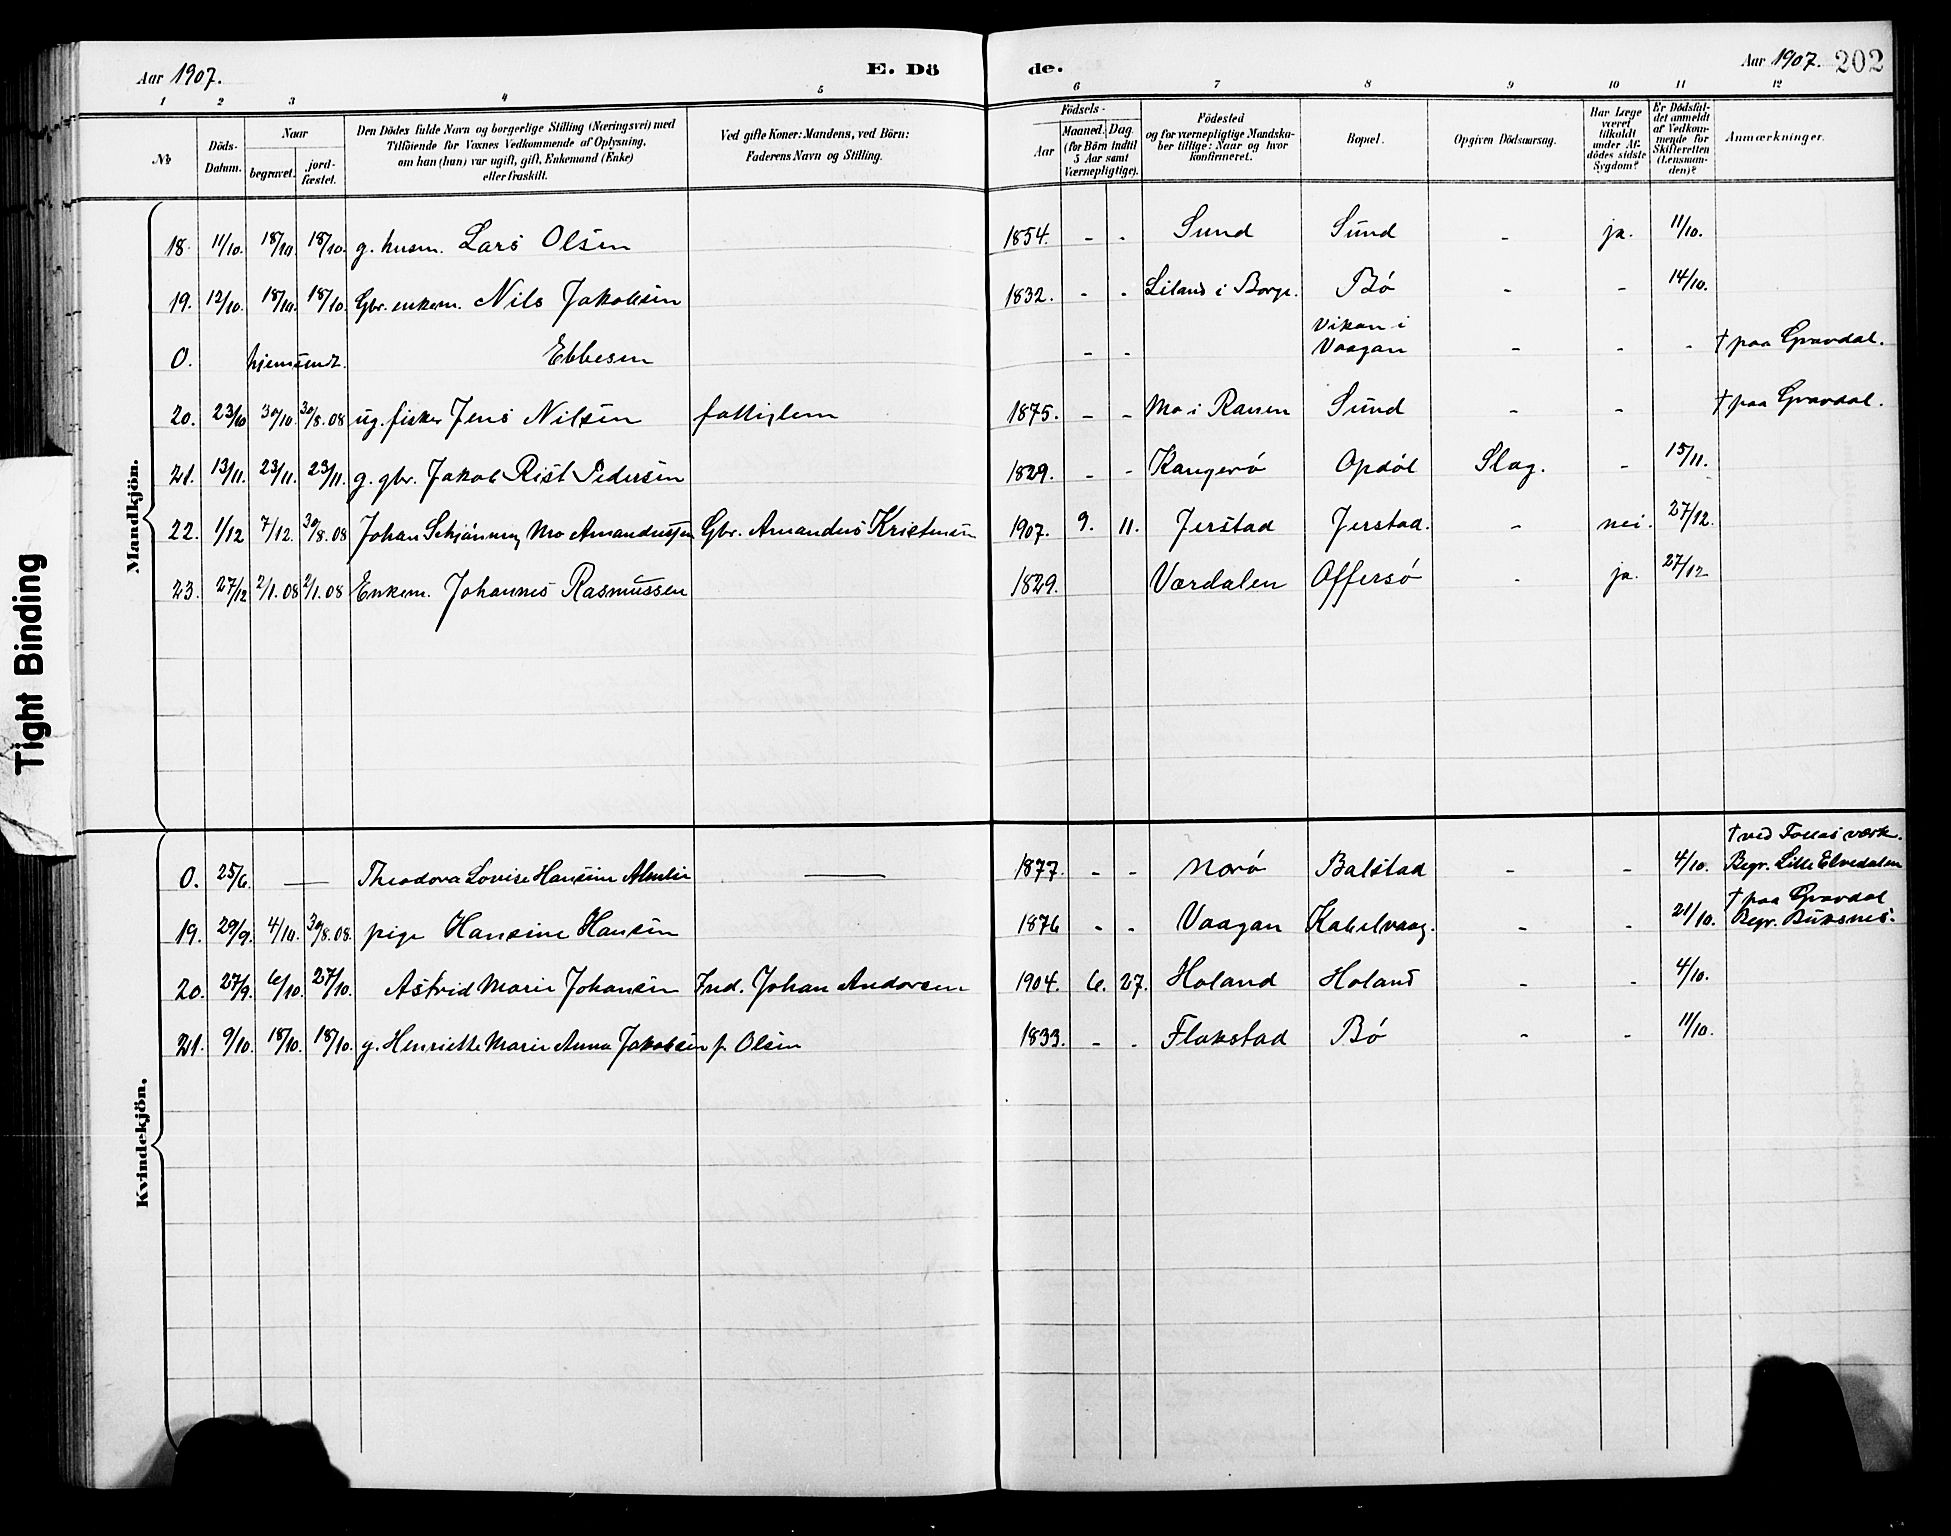 Aar 1907. E. Dö de. Aar 1907. 202
1 2 3 4 5 6 7 8 9 10 11 12
No
Döds-Datum.
Naar
begravet.
jord-fæstet.
Den Dödes fulde Navn og borgerlige Stilling (Næringsvei) med
Tilföiende for Voxnes Vedkommende af Oplysning,
om han (hun) var ugift, gift, Enkemand (Enke)
eller fraskilt.
Ved gifte Koner: Mandens, ved Börn:
Faderens Navn og Stilling.
Födsels-
Aar
Maaned. Dag.
(for Börn indtil
5 Aar samt
Værnepligtige).
Födested
og for værnepligtige Mandska-
ber tillige: Naar og hvor
konfirmeret.
Bopæl.
Opgiven Dödsaarsag.
Har Læge
været
tilkaldt
under Af-
dödes sidste
Sygdom?
Er Dödsfal-
det anmeldt
af Vedkom-
mende for
Skifteretten
(Lensman-
den)?
Anmærkninger.
Mandkjön.
18. 11/10. 18/10. 18/10. g. husm. Lars Olsen 1854. - - Sund Sund - ja. 11/10.
19. 12/10. 18/10. 18/10. Gbr. enkem. Nils Jakobsen 1832. - - Liland i Borge. Bö - - 14/10.
0. hjemsendt. Ebbesen - - Vikan i
Vaagan - - - † paa Gravdal.
20. 23/10 30/10. 30/8.08 ug. fisker Jens Nilsen fattiglem 1875. - - Mo i Ranen Sund - - † paa Gravdal.
21. 13/11. 23/11. 23/11. g. gbr. Jakob Rist Pedersen 1829. - - Kangerö Opdöl Slag. - 15/11.
22. 1/12 7/12. 30/8.08 Johan Schjönning Mo Amandussen Gbr. Amandus Kristensen 1907. 9. 11. Jerstad Jerstad. - nei. 27/12.
23. 27/12 2/1.08 2/1.08 Enkem. Johannes Rasmussen 1829. Værdalen Offersö - ja. 27/12
Kvindekjön.
† ved Fossas værk.
0. 25/6. — Theodora Lovise Hansine — 1877. - - Morö Balstad - - 4/10. Begr. Lille Elvedalen
† paa Gravdal
19. 29/9. 4/10. 30/8.08. pige Hansine Hansen 1876 - - Vaagan Kabelvaag. - - 21/10. Begr. Buksnes.
20. 27/9. 6/10. 27/10. Astrid Marie Johansen Ind. Johan Andersen 1904. 6. 27. Holand Holand - - 4/10.
21. 9/10. 18/10. 18/10. g. Henriette Marie Anna Jakobsen f. Olsen 1833. - - Flakstad Bö - - 11/10.
Tight Binding